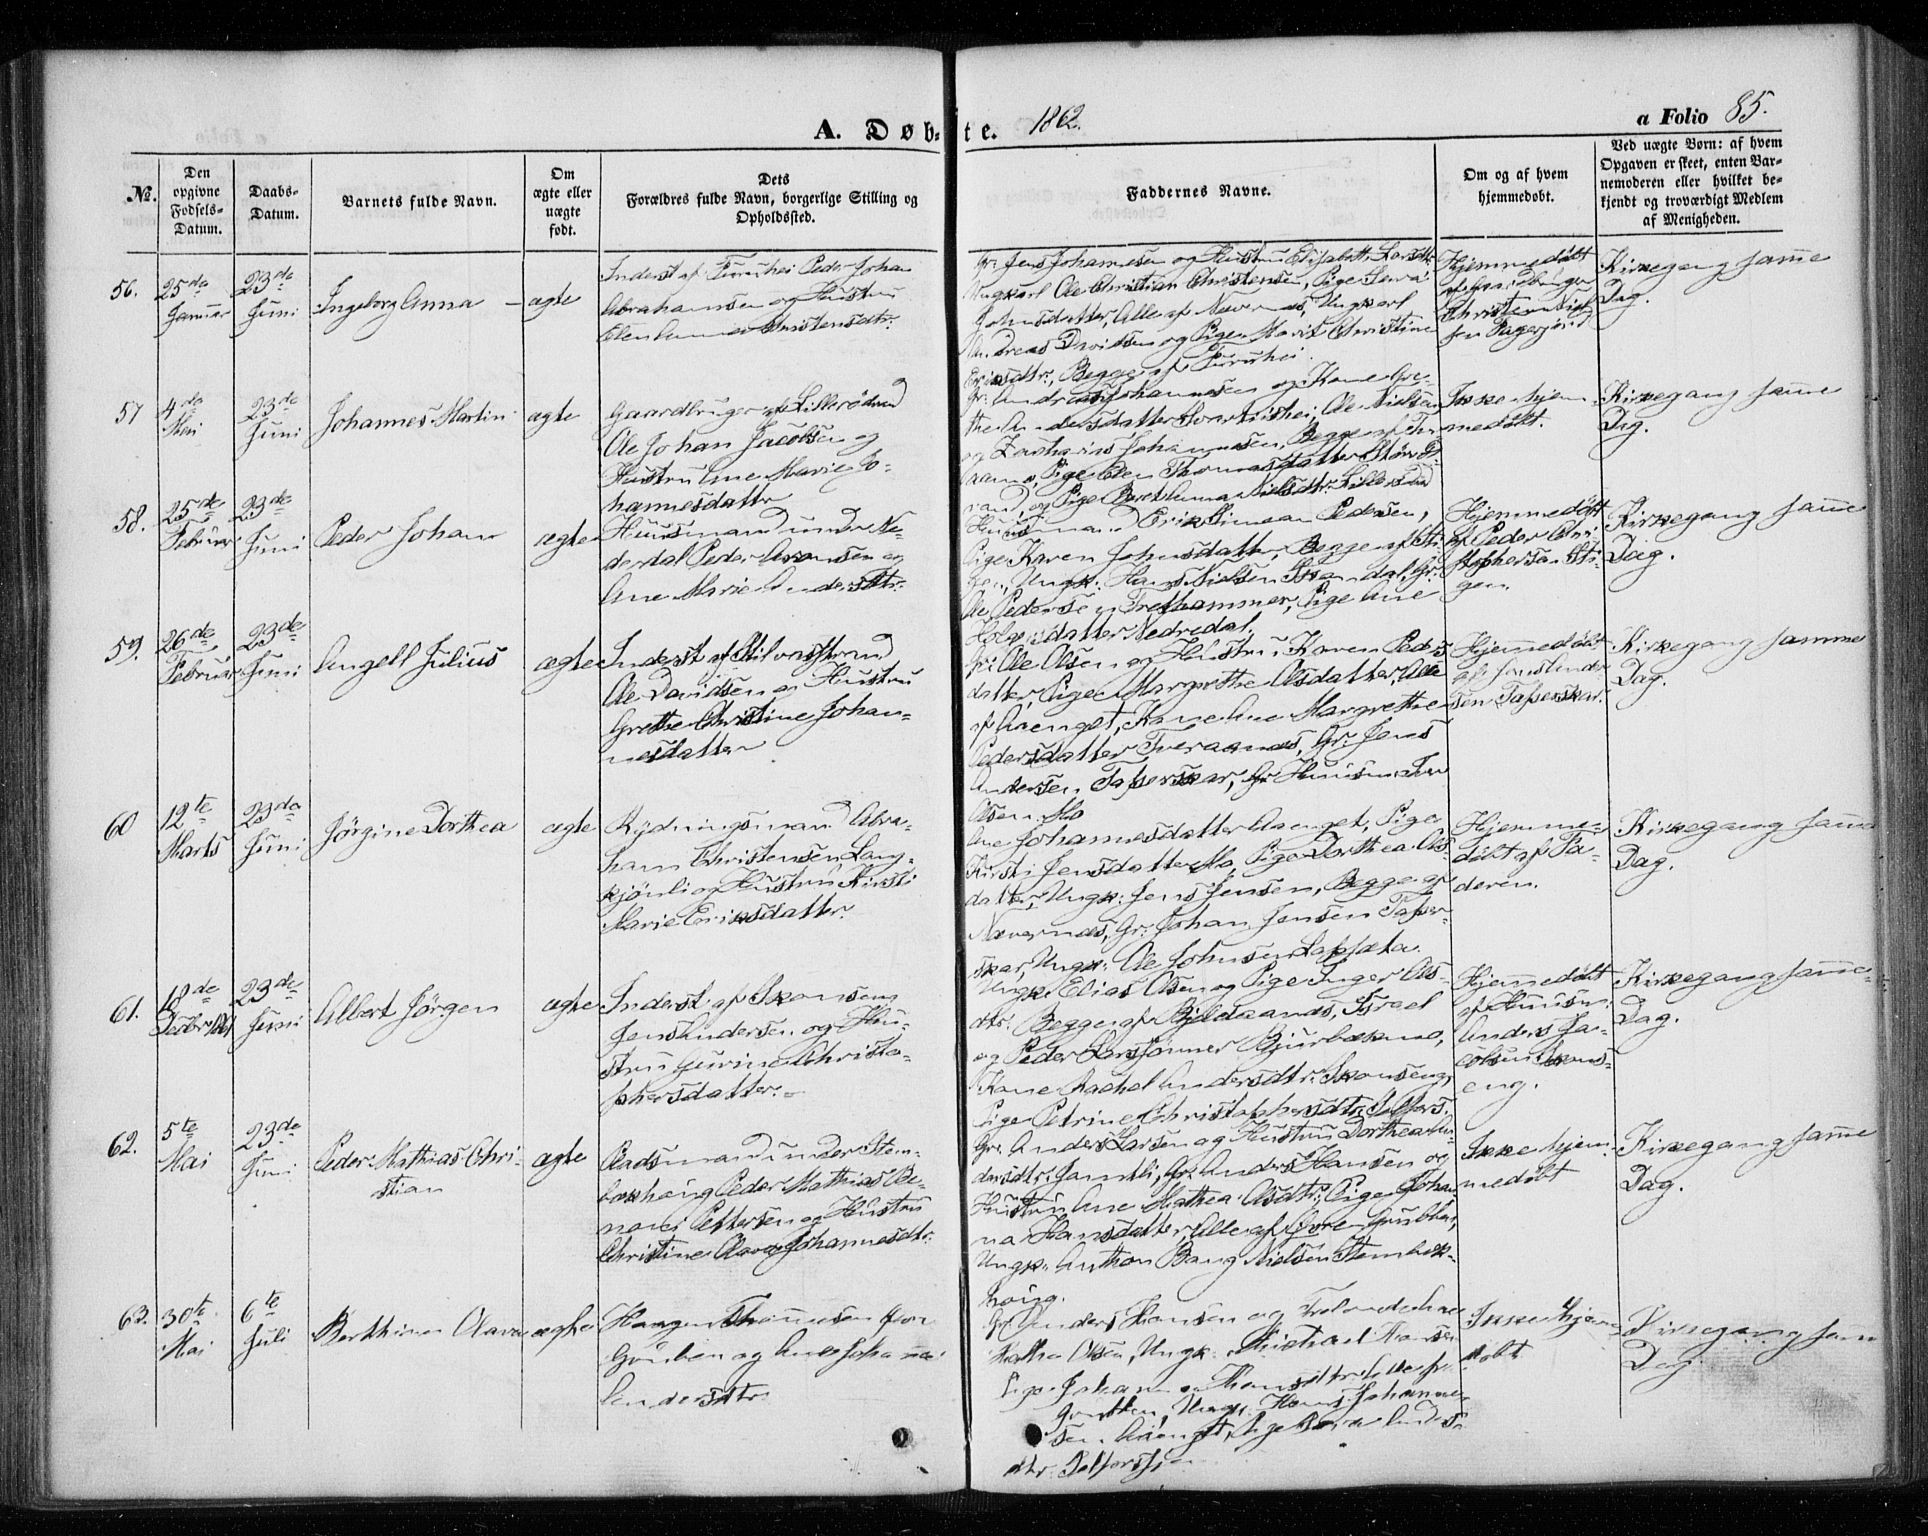 A. Døbte. 1862.
a Folio 85.
No.
Den opgivne Fødsels-Datum.
Daabs-Datum.
Barnets fulde Navn.
Om ægte eller uægte født.
Dets Forældres fulde Navn, borgerlige Stilling og Opholdssted.
Faddernes Navne.
Om og af hvem hjemmedøbt.
Ved uægte Børn: af hvem Opgaven er skeet, enten Barnemoderen eller hvilket bekjendt og troværdigt Medlem af Menigheden.
56.
25de Januar
23de Juni
Ingeborg Anna
ægte
Inderst af Furuhei Peder Johan
Abrahamsen og Hustru
Elen Anna Christensdtr.
Gr. Jens Johannesen og Hustru Elisabeth Larsdtr.
Ungkarl Ole Christian Christensen, Pige
Johnsdatter, Alle af Nævernes, Ungkarl
Andreas Davidsen og Pigen Marit Christine
Eriksdtr., Begge af Furuhei.
Hjemmedøbt
Christen
Kirkegang samme
Dag.
57
4de Mai
23de Juni
Johannes Martin
ægte
Gaardbruger af Lillerødvand
Ole Johan Jacobsen og
Hustru Ane Marie Jo-
hannesdatter
Gr. Andreas Johannesen og Kone Gre-
the Andersdatter Ole Nielsen
og Zacharias Johannesen, Begge af
Pige Elen Thomasdatter
og Pige Beret Anna Nielsdtr. Lillerødvand
Ikke hjem-
medøbt.
Kirkegang samme
Dag.
58.
25de Februar
23de Juni
Peder Johan
ægte
Huusmand under Ne-
derdal Peder Aronsen og
Ane Marie Andersdtr.
Huusmand Erik Simean Pedersen,
Pige Karen Johnsdatter, Begge af Sti-
gen, Ungk: Hans Nielsen Gr:
Ole Pedersen Trethammer, Pige Ane
datter Nedredal.
Hjemmedøbt
af Peder Chri-
stophersen Sti-
gen.
Kirkegang samme
Dag.
59.
26de Februar
23de Juni
Angell Julius
ægte
Inderst af
Ole Davidsen og Hustru
Grethe Christine Johan-
nesdatter
Gr: Ole Olsen og Hustru Karen Peders
datter, Pige Margrethe Olsdatter, Alle
af Aaenget, Kone Ane Margrethe
Pedersdatter Tveraanes, Gr: Jens
Andersen Tapperskar, Huusm: Iver
Olsen Mo
Hjemmedøbt
af Jens Ander-
sen Tapperskar.
Kirkegang samme
Dag.
60
12te Marts
23de Juni
Jørgine Dorthea
ægte
Rydningsmand Abra-
ham Christensen Lang-
kjønli og Hustru Kirsti
Marie Eriksdatter.
Ane Johannesdatter Aaenget, Pige
Kirsti Jensdatter Mo, Pige Dorthea Ols-
datter, Ungk: Jens Jensen, Begge af
Nævernes, Gr: Johan Jensen Tapper-
skar, Ungk: Ole Johnsen
Hjemme-
døbt af Fa-
deren.
Kirkegang samme
Dag.
61.
18de Decbr 1861
23de Juni
Albert Jørgen
ægte
Inderst af Skonseng
Jens Andersen og Hu-
stru Gurine Christo-
phersdatter.
Ungk. Elias Olsen og Pige Inger Ols-
dtr. Begge af Israel
og Peder Larssønner Bjurbækmo,
Kone Rachel Andersdtr. Skonseng,
Pige Petrine Christophersdtr. Selfors.
Hjemmedøbt
af Huusm:
Anders Ja-
cobsen Skons-
eng.
Kirkegang samme
Dag.
62.
5te Mai
23de Juni
Peder Mathias Chri-
stian
ægte
Pladsmand under Stem-
bækhaug Peder Mathias Be-
noni Pettersen og Hustru
Christine Olava Johannesdtr.
Gr. Anders Larsen og Hustru Dorthea An-
dersdtr. Jamtli, Gr. Anders Hansen og
Hustru Ane Mathea Olsdtr., Pige Johan-
na Hansdatter, Alle af Øvre Grubben,
Ungk: Anthon Bang Nielsen Stembæk-
haug.
Ikke hjem-
medøbt
Kirkegang samme
Dag.
63.
30te Mai
6te Juli
Berthine Olava
ægte
Haagen Thomesen
Grubben og Ane Johanna
Andersdtr.
Gr Anders Hansen og
Mathea Olsen, Ungk: Michael Hansen
Pige Johanna Hansdtr. Alle fra
Grubben, Ungk. Hans Johanne-
sen Aaenget, Pige Anders-
dtr. Selforsfjor
Ikke hjem
døbt
Kirkegang sam
Dag